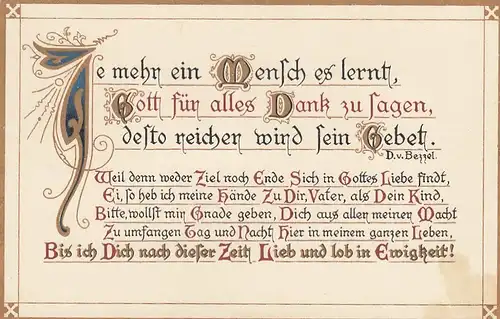 Je mehr ein Mensch es lernt,
Gott für alles Dank zu sagen,
desto reicher wird sein Gebet.
D.v. Bezzel.
Weil denn weder Ziel noch Ende Sich in Gottes Liebe findt,
Ei, so heb ich meine Hände Zu Dir, Vater, als Dein Kind,
Bitte, wollst mir Gnade geben, Dich aus aller meiner Macht
Zu umfangen Tag und Nacht Hier in meinem ganzen Leben,
Bis ich Dich nach dieser Zeit Lieb und lob in Ewigkeit!